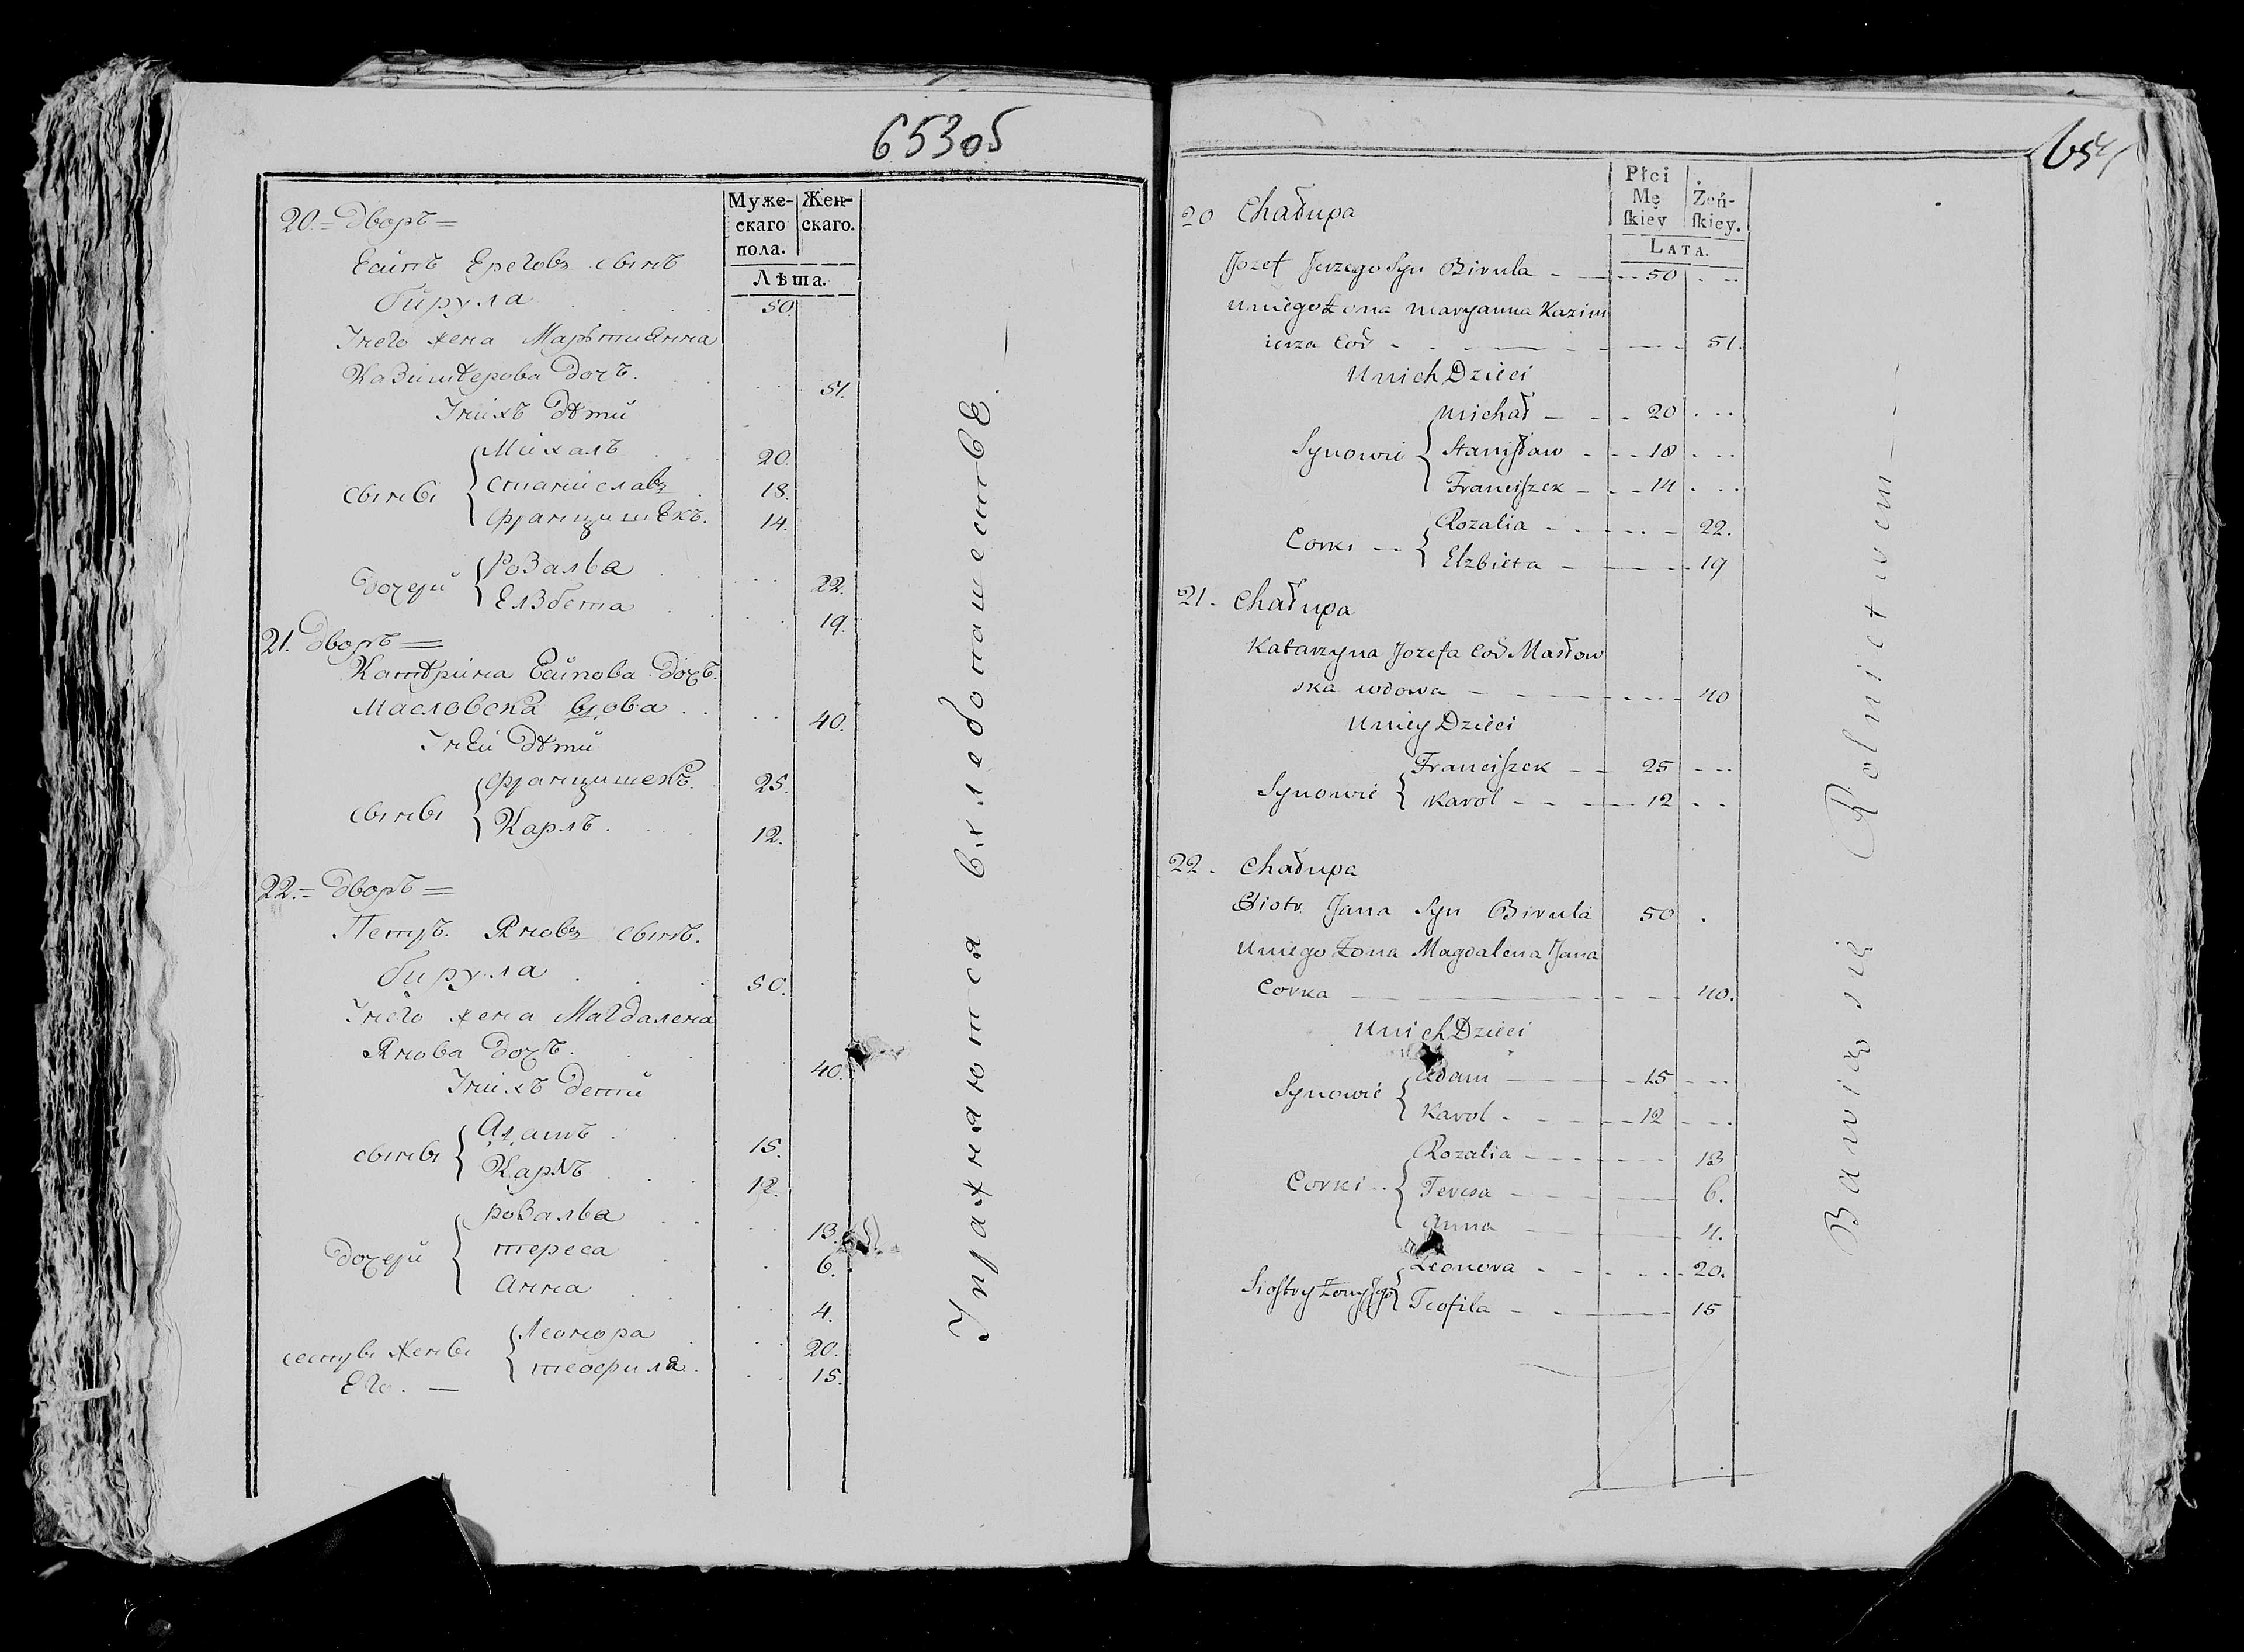 653об
Муже-
скаго
пола.
Жен-
скаго.
Лѣта.
20. = Дворъ =
Есипъ Ереговъ сынъ
Бирула 50.
Унего жена Марытиянна
Казимѣрова дочъ. 51.
Унихъ дѣти
сыны
Михалъ 20.
Станиславъ 18.
Францишекъ. 14.
дочери
Розалья 22.
Елзбета 19.
21. Дворъ =
Катѣрина Есипова дочъ.
Масловска вдова 40.
Уней дѣти
сыны
Францишекъ. 25.
Карлъ. 12.
22. = Дворъ =
Петръ. Яновъ сынъ.
Бирула 50.
Унего жена Магдалена
Янова дочъ. 40.
Унихъ дети
сыны
Адамъ 15.
Карлъ 12.
дочери
Розалья 13.
Тереса 6.
Анна 4.
сестры жены
Его. —
Леонора 20.
Теофиля. 15.
Упражняются вхлебопашествѣ.
654
Płci
Mę
ſkiey
Żeń-
ſkiey.
LATA.
20 Chałupa
Jozef Jerzego Syn Birula 50
Uniego Żona Maryanna Kazim
ierza Cod 51.
Unich Dzieci
Synowie
Michał 20
Staniſław 18
Franciſzek 14
Corki
Rozalia 22.
Elzbieta 19
21. Chałupa
Katarzyna Jozefa Cod Masłow
ska wdowa 40
Uniey Dzieci
Synowie
Franciſzek 25
Karol 12
22. Chałupa
Piotr Jana Syn Birula 50
Uniego Żona Magdalena Jana
Corka 40.
Unich Dzieci
Synowie
Adam 15
Karol 12
Corki
Rozalia 13
Teresa 6.
Anna 4.
Sioſtry Żony Jego
Leonora 20.
Teofila 15
Bawią się Rolnictwem